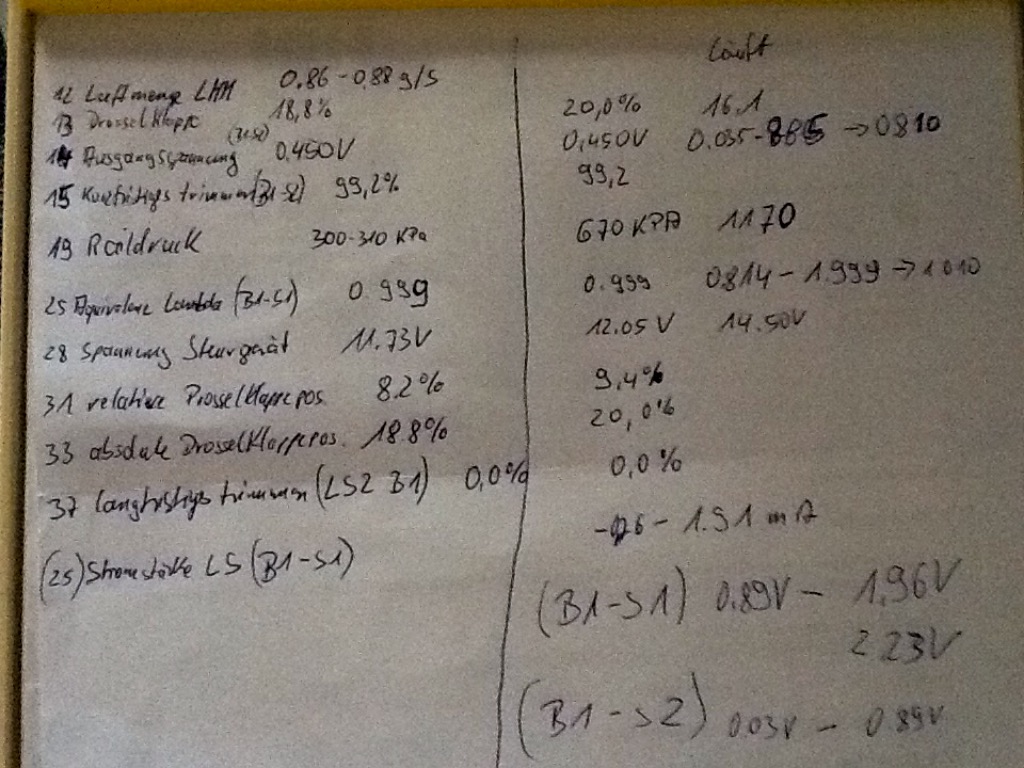 läuft
12 Luftmenge LMM 0.86 - 0.88 g/s
13 Drosselklappe 18,8% 20,0% 16.1
14 Ausgangsspannung 0.450V 0,450V 0.035 - 885 → 0810
15 Kurzfristiges trimmen (B1-S2) 99,2% 99,2
19 Raildruck 300-310 KPa 670 KPA 1170
25 Äquivalenz Lambda (B1-S1) 0.999 0.999 0.814 - 1.999 → 1.010
28 Spannung Steurgerät 11.73V 12.05 V 14.50V
31 relative Drosselklappepos. 8.2% 9,4%
33 absolute Drosselklappepos. 18.8% 20,0%
37 langfristiges trimmen (LS2 B1) 0,0% 0,0%
(25) Stromstärke LS (B1-S1) - 1.91 mA
(B1-S1) 0.89V - 1,96V
2.23V
(B1-S2) 0.03V - 0.89V